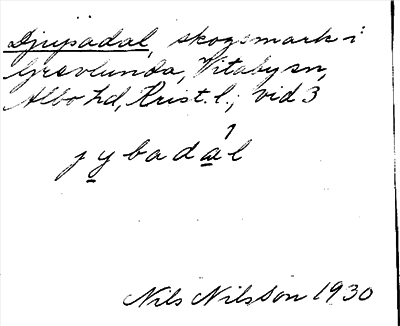 Djupadal, skogsmark i
Grevlunda, Vitaby sn,
Albo hd, Krist. l., vid 3
jybadal
Nils Nilsson 1930